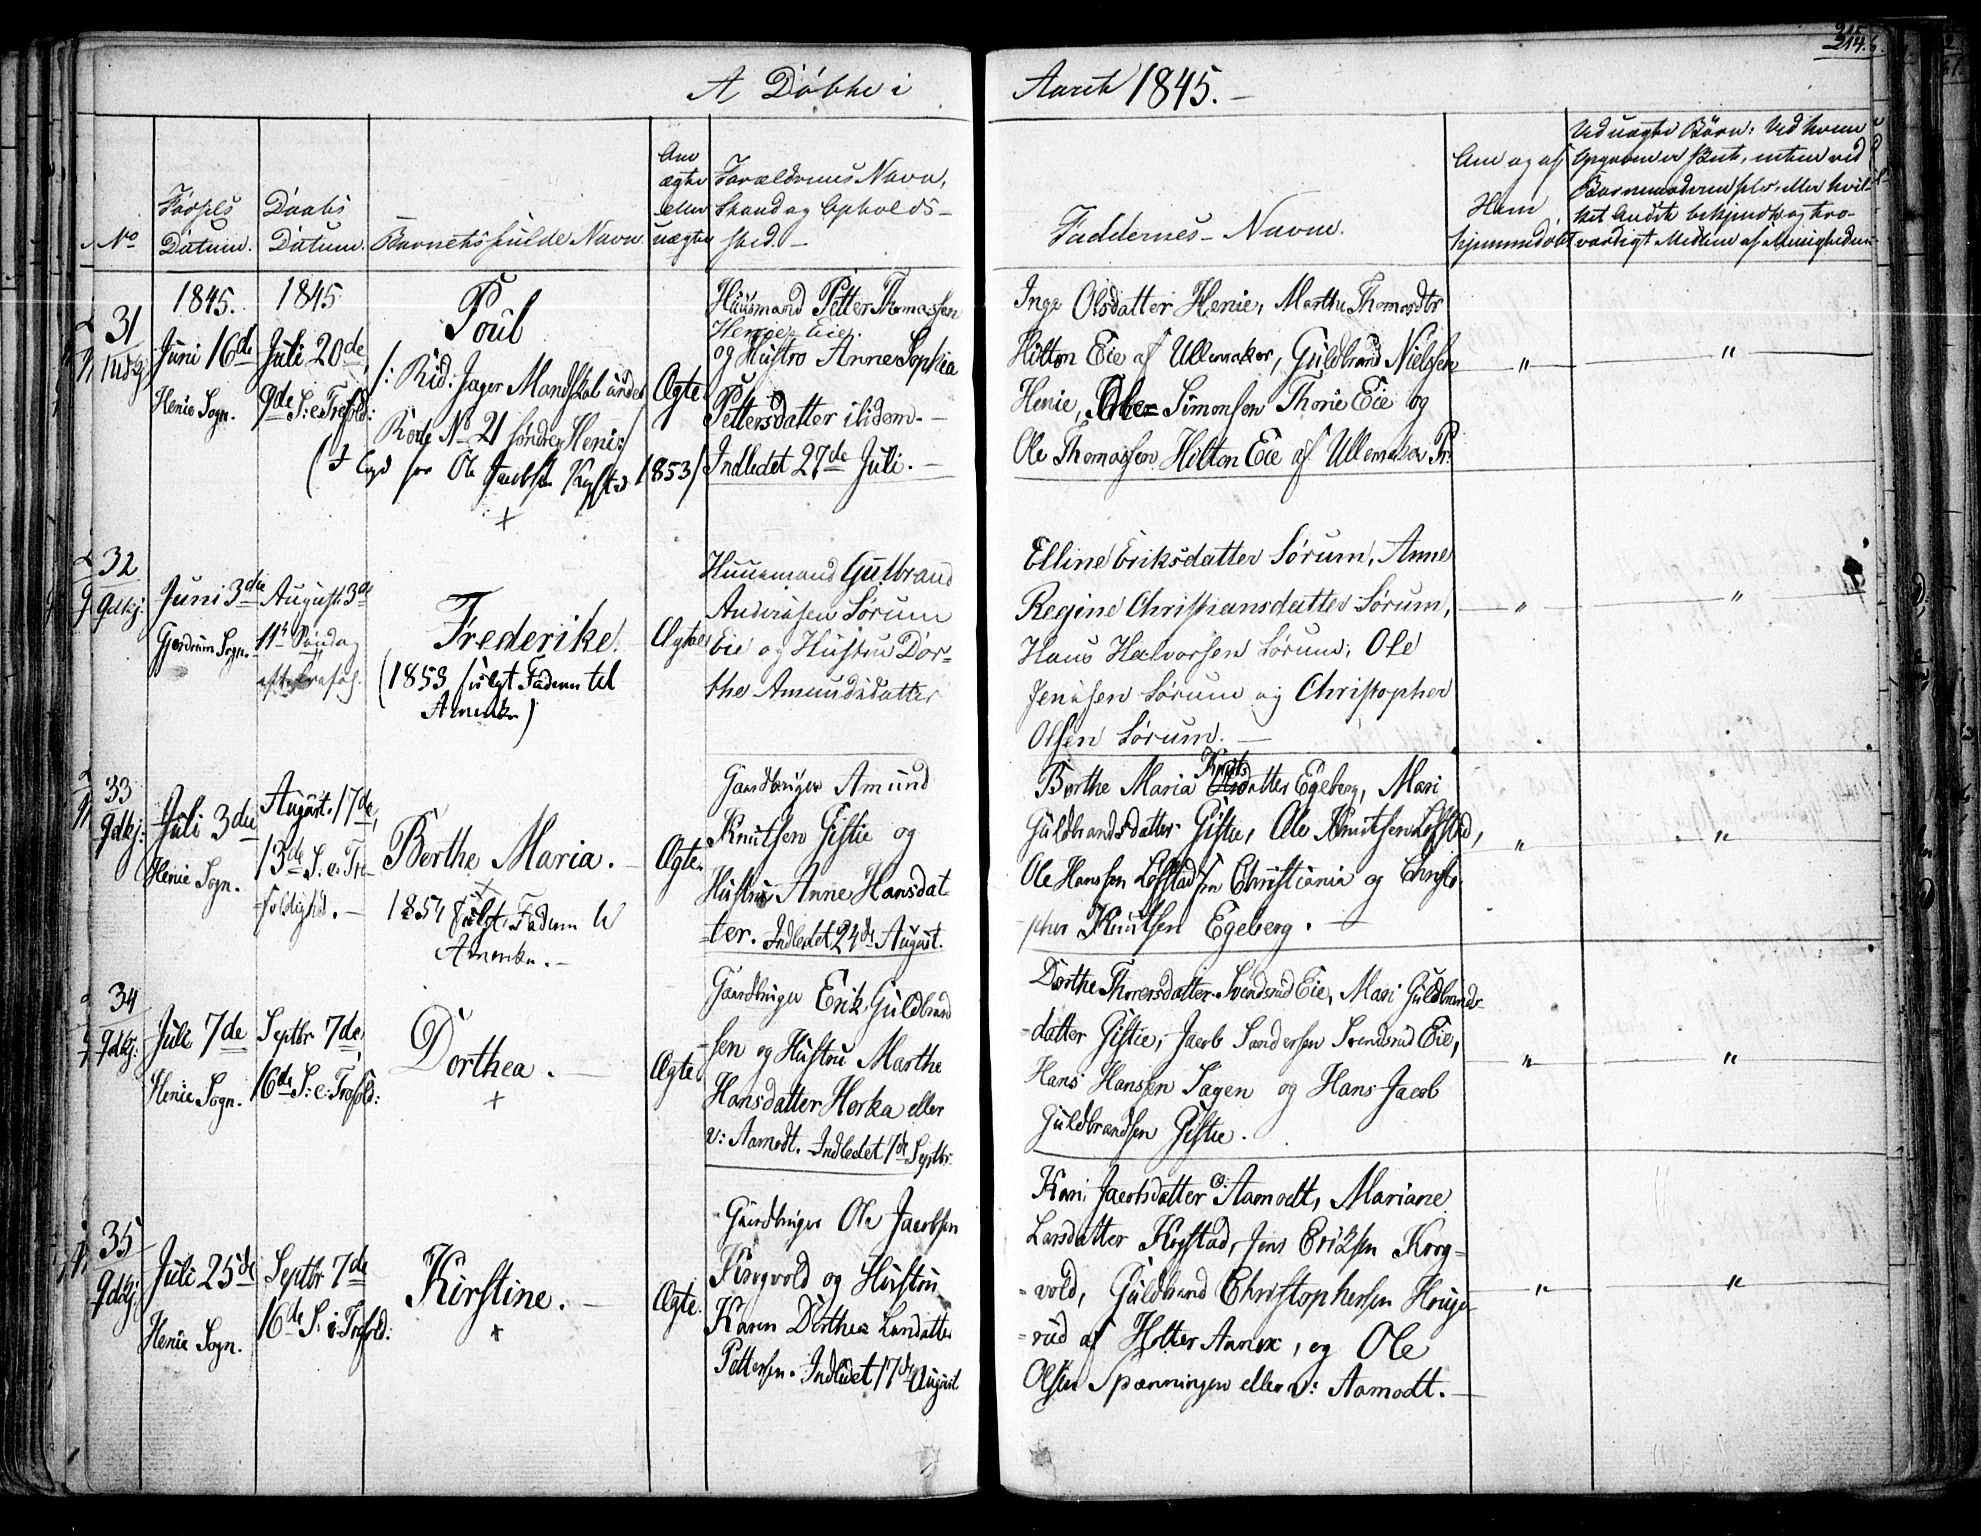 214.
A Döbte i Aaret 1845.
No
Fødsels Datum.
Daabs Datum.
Barnets fulde Navn
Om ægte eller uægte
Forældrenes Navn, Stand og Opholds-
sted.
Faddernes Navne.
Om og af
Hvem
hjemmedøbt
Ved uægte Børn: Ved hvem
Opgaven er skeet, enten ved
Barnemoderen selv, eller hvil-
ket Andet bekjendt og tro-
værdigt Medlem af Menigheden
31
1845.
Juni 16de
Henie Sogn.
1845
Juli 20de,
9de S: e: Trefold:
Poul
/: Rid: Jager Mandskab under
Rode No 21 søndre Henie:/
1853/
+
Ægte
Huusmand Petter Thomassen
Henie Eie.
og Hustro Anne Sophia
Pettersdatter ibidem.
Indledet 27de Juli.
Inge Olsdatter Henie, Marthe Thomasdtr
Hilton Eie af Ullensaker, Guldbrand Nielssen
Henie, Simonsen Thorie Eie og
Ole Thomassen Hilton Eie af Ullensaker Pr:
"
"
32
Gdkj:
Juni 3die
Gjerdrum Sogn.
August 3de
11te Søndag
Frederike.
(1853 fulgt Faderen til
Amerika)
Ægte
Huusmand Gulbrand
Andersen Sørum
Eie og Hustru Dor-
the Amundsdatter
Elline Eriksdatter Sørum, Anne
Regine Christiansdatter Sørum,
Hans Halvorsen Sørum, Ole
Jensen Sørum og Christopher
Olsen Sørum.
"
"
33
Gdkj:
Juli 3die
Henie Sogn.
August. 17de,
13de S. e. Tre-
foldighd.
Berthe Maria.
+
1854 fulgt Faderen til
Amerika.
Ægte.
Gaardbruger Amund
Knutsen Gistie og
Hustru Anne Hansdat
ter. Indledet 24de August.
Knuts
Berthe Maria datter Egeberg, Mari
Guldbrandsdatter Gistie, Ole Knutsen Løfstad,
Ole Hanssen Løfstad fra Christiania og Christo-
pher Knutsen Egeberg.
"
"
34
Gdkj:
Juli 7de
Henie Sogn.
Septbr 7de,
16de S: e: Trefold:
Dorthea.
+
Ægte.
Gaardbruger Erik Guldbrand
sen og Hustru Marthe
Hansdatter Horka eller
v: Aamodt. Indledet 7de Septbr
Dorthe Thorersdatter Svendsrud Eie, Mari Guldbrands-
datter Gistie, Jacob Sandersen Svendsrud Eie,
Hans Hansen Sagen og Hans Jacob
Guldbrandsen Gistie.
"
"
35
Gdkj:
Juli 25de
Henie Sogn.
Septbr 7de
16de S: e: Trefold:
Kirstine.
+
Ægte.
Gaardbruger Ole Jacobsen
og Hustru
Karen Dorthea Larsdatter
Pettersen. Indledet 17de August
Kari Jacobsdatter Aamodt, Mariane
Larsdatter Krystad, Jens Eriksen Krog-
vold, Guldbrand Christophersen Hauge-
rud af Holter Annex, og Ole
Olsen Spænningen eller v: Aamodt.
"
"